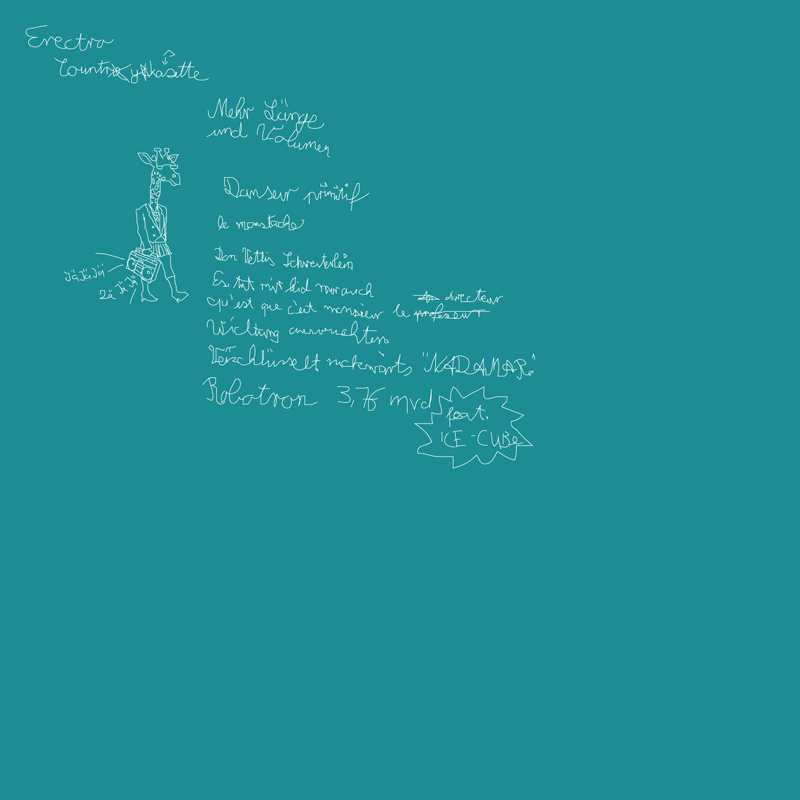 Erectro
Countrykasette
Mehr Länge
und Volumen
Danseur primitif
le moustache
Den Vettis Schwesterlein
Es tut mir leid nur auch
qu'est que c'est monsieur le professeur directeur
Wichtung
Verschlüsselt rückwärts "NADAMAR"
Robotron 3,76 mvd
feat.
ICE-CUBE
Jä Jä Jä
Jä Jä Jä